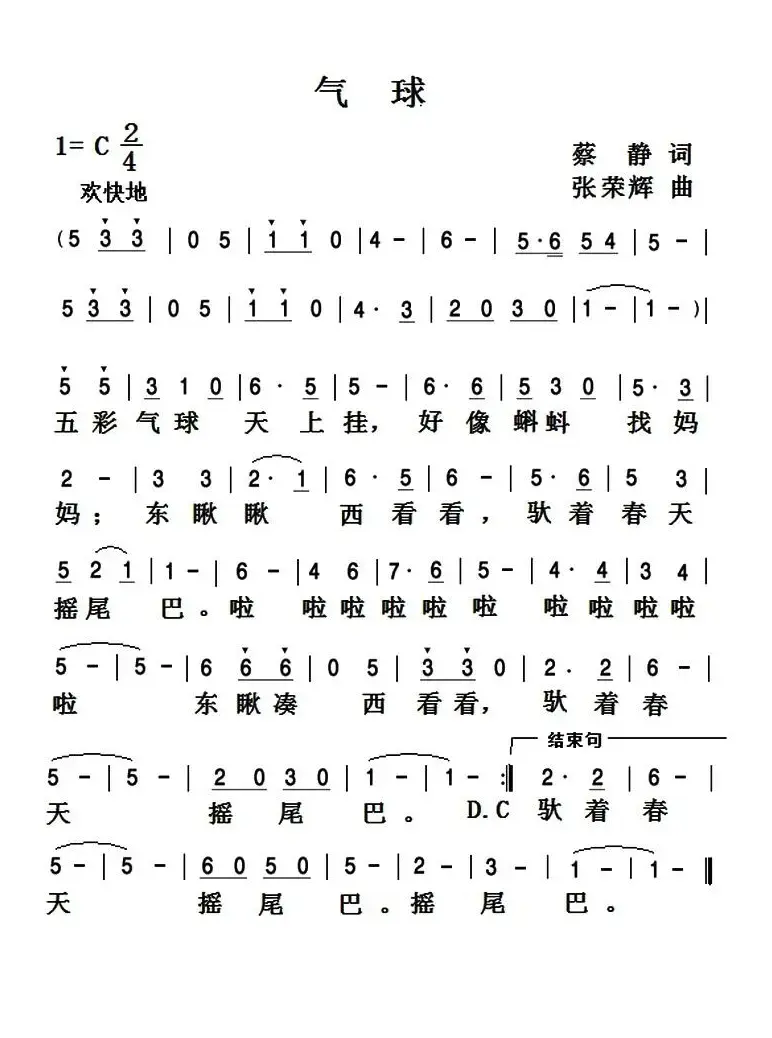 气 球
1= C 2/4
蔡 静 词
欢快地
张荣辉 曲
( 5 3 3 | 0 5 | 1 1 0 | 4 - | 6 - | 5 · 6 5 4 | 5 - |
5 3 3 | 0 5 | 1 1 0 | 4 · 3 | 2 0 3 0 | 1 - | 1 - ) |
5 5 | 3 1 0 | 6 · 5 | 5 - | 6 · 6 | 5 3 0 | 5 · 3 |
五 彩 气 球 天 上 挂, 好 像 蝌 蚪 找 妈
2 - | 3 3 | 2 · 1 | 6 · 5 | 6 - | 5 · 6 | 5 3 |
妈; 东 瞅 瞅 西 看 看, 驮 着 春 天
5 2 1 | 1 - | 6 - | 4 6 | 7 · 6 | 5 - | 4 · 4 | 3 4 |
摇 尾 巴。 啦 啦 啦 啦 啦 啦 啦 啦 啦 啦
5 - | 5 - | 6 6 6 | 0 5 | 3 3 0 | 2 · 2 | 6 - |
啦 东 瞅 凑 西 看 看, 驮 着 春
结束句
5 - | 5 - | 2 0 3 0 | 1 - | 1 - :‖ 2 · 2 | 6 - |
天 摇 尾 巴。 D.C 驮 着 春
5 - | 5 - | 6 0 5 0 | 5 - | 2 - | 3 - | 1 - | 1 - ‖
天 摇 尾 巴。 摇 尾 巴。